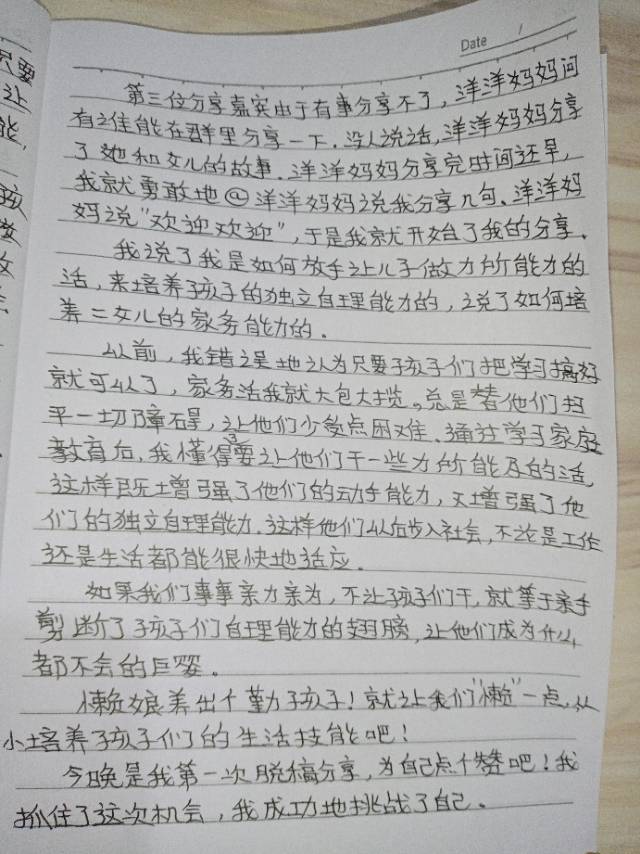 Date /
第三位分享嘉宾由于有事分享不了，洋洋妈妈问
有谁能在群里分享一下．没人说话，洋洋妈妈分享
了她和女儿的故事．洋洋妈妈分享完时间还早，
我就勇敢地@洋洋妈妈说我分享几句、洋洋妈
妈说"欢迎欢迎"，于是我就开始了我的分享．
我说了我是如何放手让儿子做力所能的
活，来培养孩子的独立自理能力的，说了如何培
养二女儿的家务能力的．
以前，我错误地认为只要孩子们把学习搞好
就可以了，家务活我就大包大揽。总是替他们扫
平一切障碍，让他们少些点困难、通过学习家庭
教育后，我懂得了要让他们干一些力所能及的活，
这样既增强了他们的动手能力，又增强了他
们的独立自理能力．这样他们以后步入社会，不论是工作
还是生活都能很快地适应．
如果我们事事亲力亲为，不让孩子们干，就等于亲手
剪断了孩子们自理能力的翅膀，让他们成为什么
都不会的巨婴。
懒娘养出个勤孩子！就让我们"懒"一点，从
小培养孩子们的生活技能吧！
今晚是我第一次脱稿分享，为自己点个赞吧！我
抓住了这次机会，我成功地挑战了自己。
只要
让
能，
孩
做